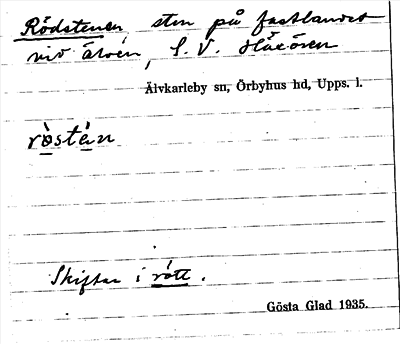 Rödstenen, sten på fastlandet
vid älven, S. V. Håcören
Älvkarleby sn, Örbyhus hd, Upps. l.
rö̀sté̀n
Skiftar i rött.
Gösta Glad 1935.